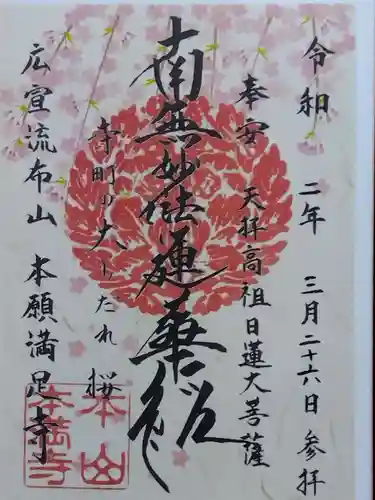 令和二年 三月二十六日 参拝
奉安 天拝高祖日蓮大菩薩
南無妙法蓮華経
寺町の大しだれ桜
広宣流布山 本願満足寺
本山
本満寺